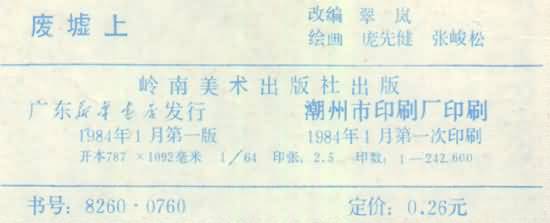 废墟上
改编 翠岚
绘画 庞先健 张峻松
岭南美术出版社出版
广东新华书店发行 潮州市印刷厂印刷
1984年1月第一版 1984年1月第一次印刷
开本787×1092毫米 1/64 印张:2.5 印数:1—242,600
书号:8260·0760 定价:0.26元